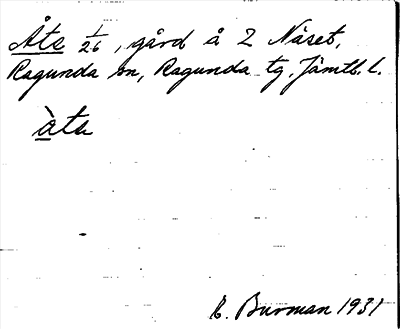 Åte 1/26, gård å 2 Näset,
Ragunda sn, Ragunda tg, Jämtl. l.
àta
C. Burman 1931